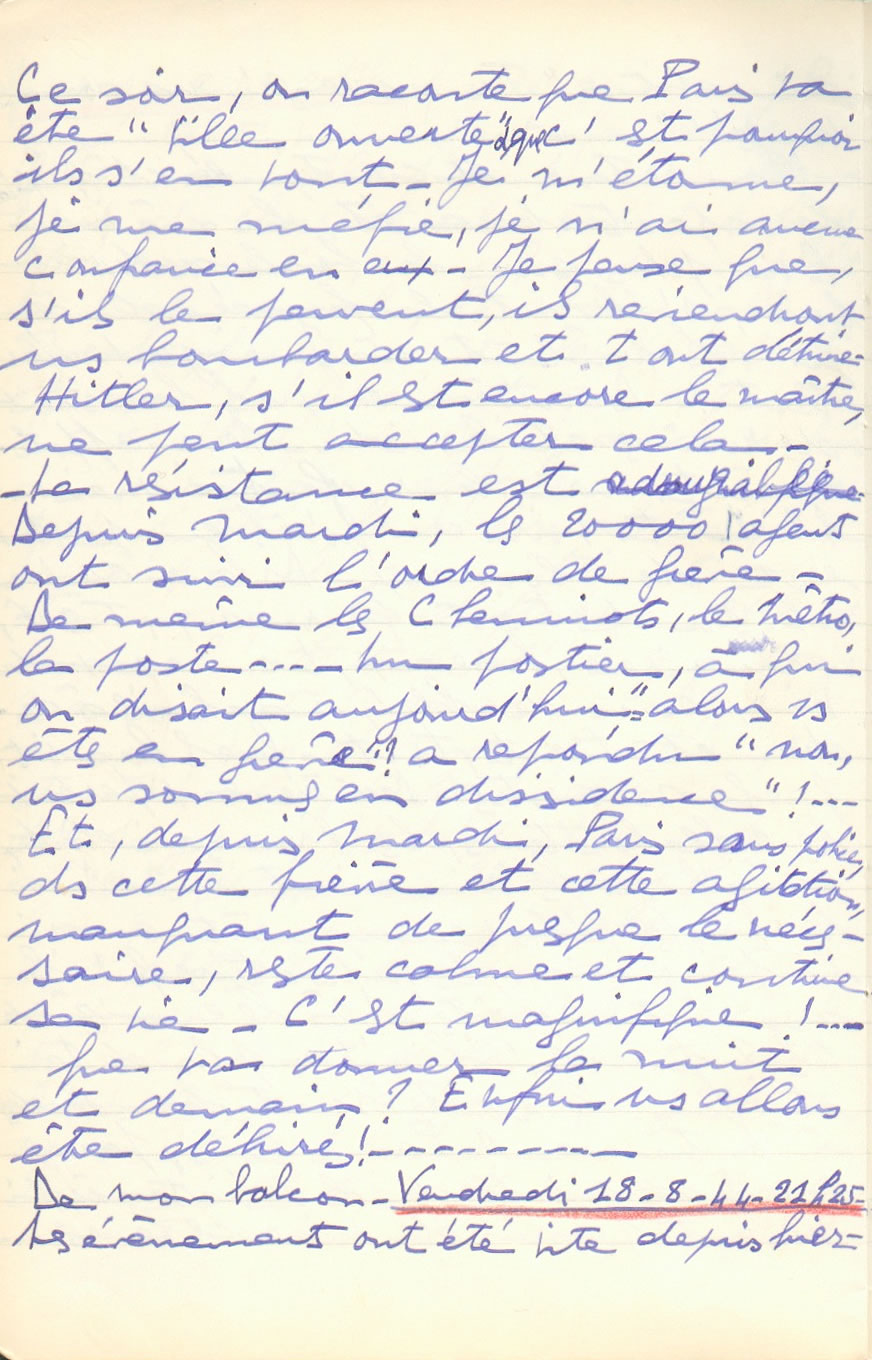 Ce soir, on raconte que Paris va
être "Ville ouverte" & que c'est pourquoi
ils s'en vont – Je m'étonne,
je me méfie, je n'ai aucune
confiance en eux – Je pense que,
s'ils le peuvent, ils reviendront
ns bombarder et tout détruire –
Hitler, s'il est encore le maître,
ne peut accepter cela –
– La résistance est
Depuis mardi, les 20000 agents
ont suivi l'ordre de grève –
De même les Cheminots, le Métro,
la poste ---- Un postier, à qui
on disait aujourd'hui "alors vs
êtes en grève"? a répondu "non,
ns sommes en dissidence"! ---
Et, depuis mardi, Paris sans police,
ds cette fièvre et cette agitation,
manquant de presque le néces-
saire, reste calme et continue
sa vie – C'est magnifique! ---
Que va donner la nuit
et demain? Enfin ns allons
être délivrés! ---------
De mon balcon – Vendredi 18-8-44-21h25 –
Les événements ont été vite depuis hier –